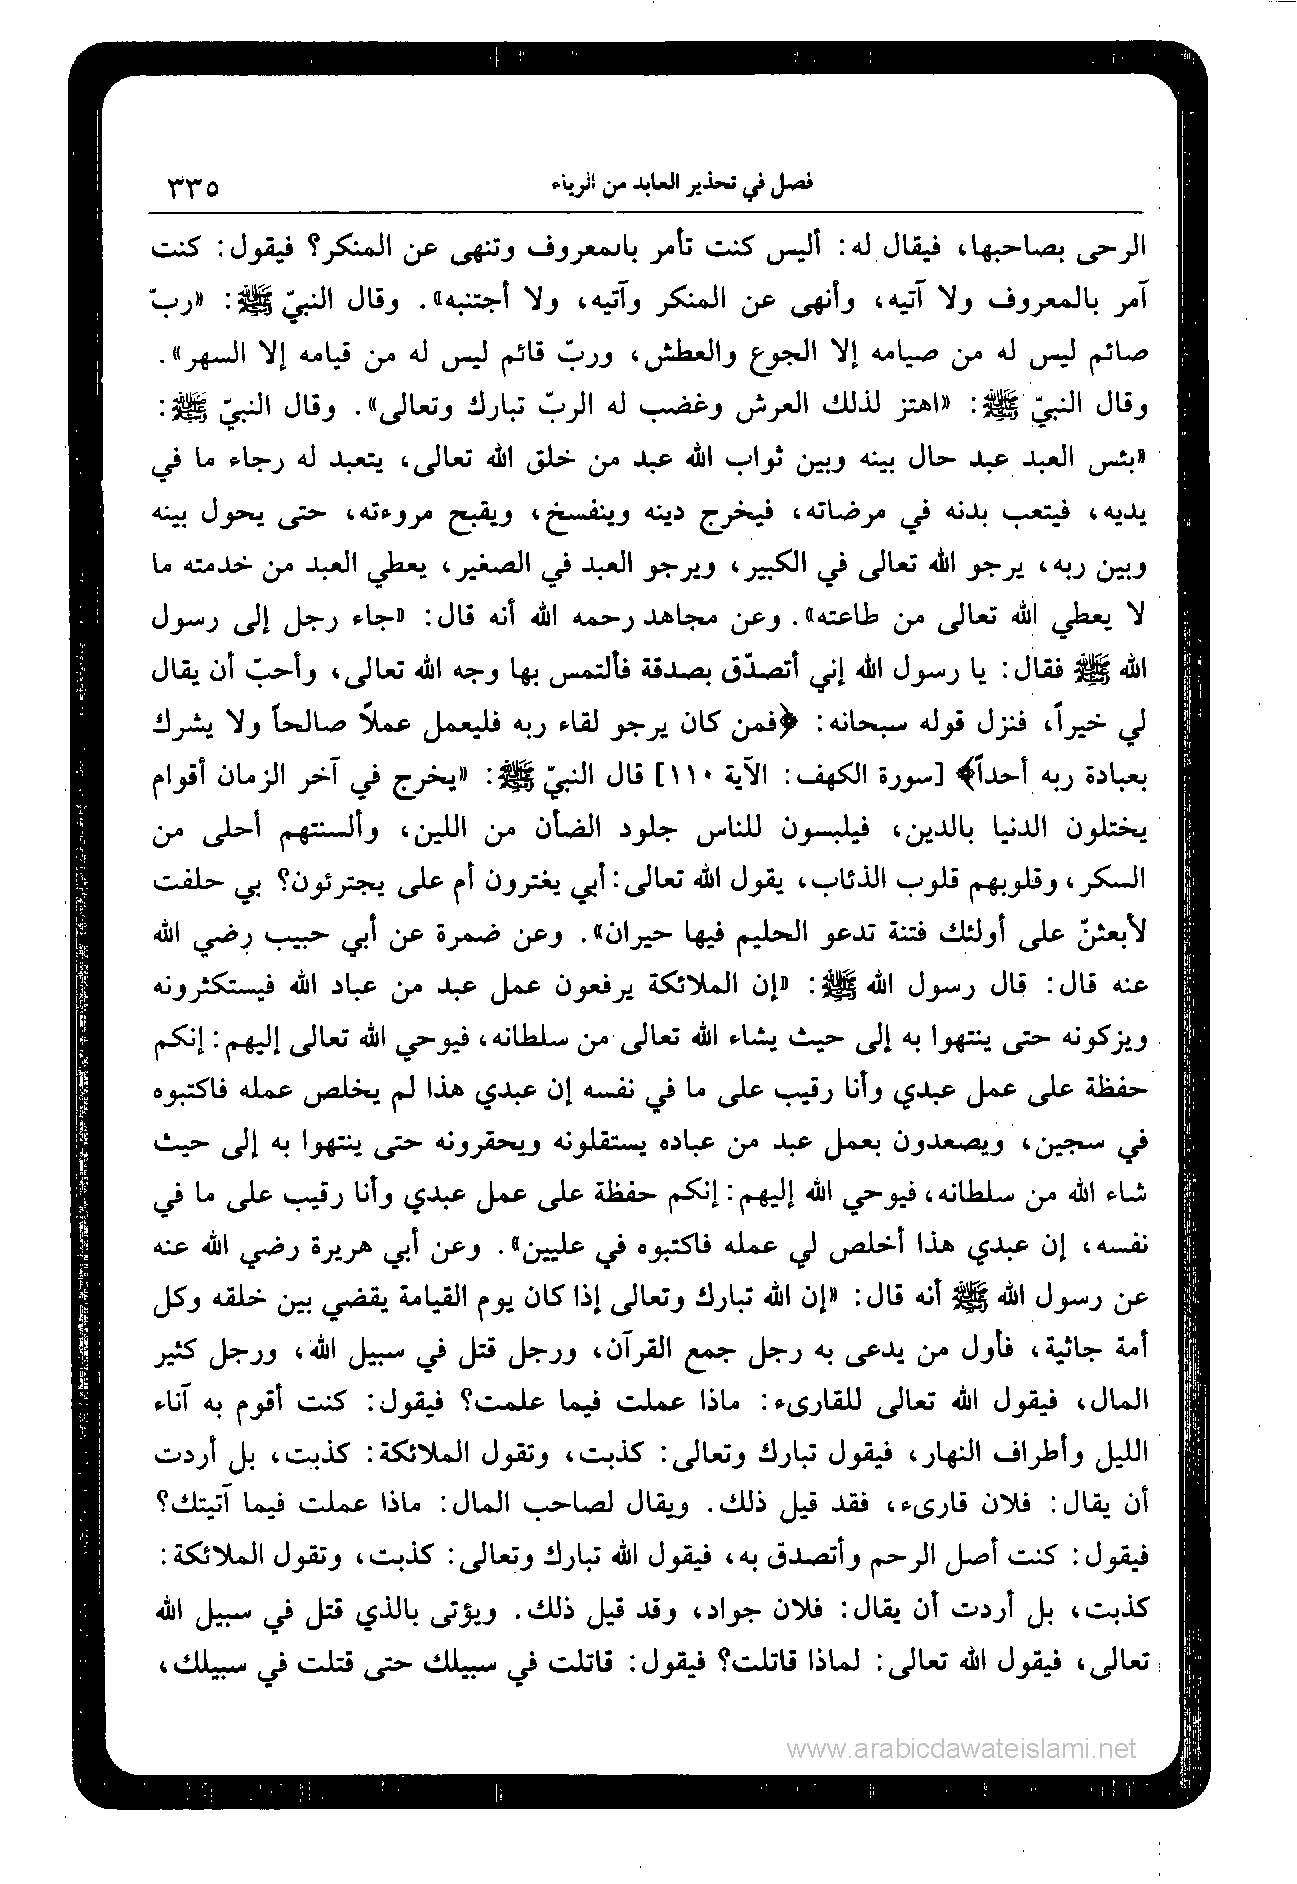 فصل في تحذير العابد من الرياء ٣٣٥
الرحى بصاحبها، فيقال له: أليس كنت تأمر بالمعروف وتنهى عن المنكر؟ فيقول: كنت
آمر بالمعروف ولا آتيه، وأنهى عن المنكر وآتيه، ولا أجتنبه». وقال النبيّ ﷺ: «ربّ
صائم ليس له من صيامه إلا الجوع والعطش، وربّ قائم ليس له من قيامه إلا السهر».
وقال النبيّ ﷺ: «اهتز لذلك العرش وغضب له الربّ تبارك وتعالى». وقال النبيّ ﷺ:
«بئس العبد عبد حال بينه وبين ثواب الله عبد من خلق الله تعالى، يتعبد له رجاء ما في
يديه، فيتعب بدنه في مرضاته، فيخرج دينه وينفسخ، ويقبح مروءته، حتى يحول بينه
وبين ربه، يرجو الله تعالى في الكبير، ويرجو العبد في الصغير، يعطي العبد من خدمته ما
لا يعطي الله تعالى من طاعته». وعن مجاهد رحمه الله أنه قال: «جاء رجل إلى رسول
الله ﷺ فقال: يا رسول الله إني أتصدّق بصدقة فألتمس بها وجه الله تعالى، وأحبّ أن يقال
لي خيراً، فنزل قوله سبحانه: ﴿فمن كان يرجو لقاء ربه فليعمل عملاً صالحاً ولا يشرك
بعبادة ربه أحداً﴾ [سورة الكهف: الآية ١١٠] قال النبيّ ﷺ: «يخرج في آخر الزمان أقوام
يختلون الدنيا بالدين، فيلبسون للناس جلود الضأن من اللين، وألسنتهم أحلى من
السكر، وقلوبهم قلوب الذئاب، يقول الله تعالى: أبي يغترون أم على يجترئون؟ بي حلفت
لأبعثنّ على أولئك فتنة تدعو الحليم فيها حيران». وعن ضمرة عن أبي حبيب رضي الله
عنه قال: قال رسول الله ﷺ: «إن الملائكة يرفعون عمل عبد من عباد الله فيستكثرونه
ويزكونه حتى ينتهوا به إلى حيث يشاء الله تعالى من سلطانه، فيوحي الله تعالى إليهم: إنكم
حفظة على عمل عبدي وأنا رقيب على ما في نفسه إن عبدي هذا لم يخلص عمله فاكتبوه
في سجين، ويصعدون بعمل عبد من عباده يستقلونه ويحقرونه حتى ينتهوا به إلى حيث
شاء الله من سلطانه، فيوحي الله إليهم: إنكم حفظة على عمل عبدي وأنا رقيب على ما في
نفسه، إن عبدي هذا أخلص لي عمله فاكتبوه في عليين». وعن أبي هريرة رضي الله عنه
عن رسول الله ﷺ أنه قال: «إن الله تبارك وتعالى إذا كان يوم القيامة يقضي بين خلقه وكل
أمة جاثية، فأول من يدعى به رجل جمع القرآن، ورجل قتل في سبيل الله، ورجل كثير
المال، فيقول الله تعالى للقارىء: ماذا عملت فيما علمت؟ فيقول: كنت أقوم به آناء
الليل وأطراف النهار، فيقول تبارك وتعالى: كذبت، وتقول الملائكة: كذبت، بل أردت
أن يقال: فلان قارىء، فقد قيل ذلك. ويقال لصاحب المال: ماذا عملت فيما آتيتك؟
فيقول: كنت أصل الرحم وأتصدق به، فيقول الله تبارك وتعالى: كذبت، وتقول الملائكة:
كذبت، بل أردت أن يقال: فلان جواد، وقد قيل ذلك. ويؤتى بالذي قتل في سبيل الله
تعالى، فيقول الله تعالى: لماذا قاتلت؟ فيقول: قاتلت في سبيلك حتى قتلت في سبيلك،
www.arabicdawateislami.net